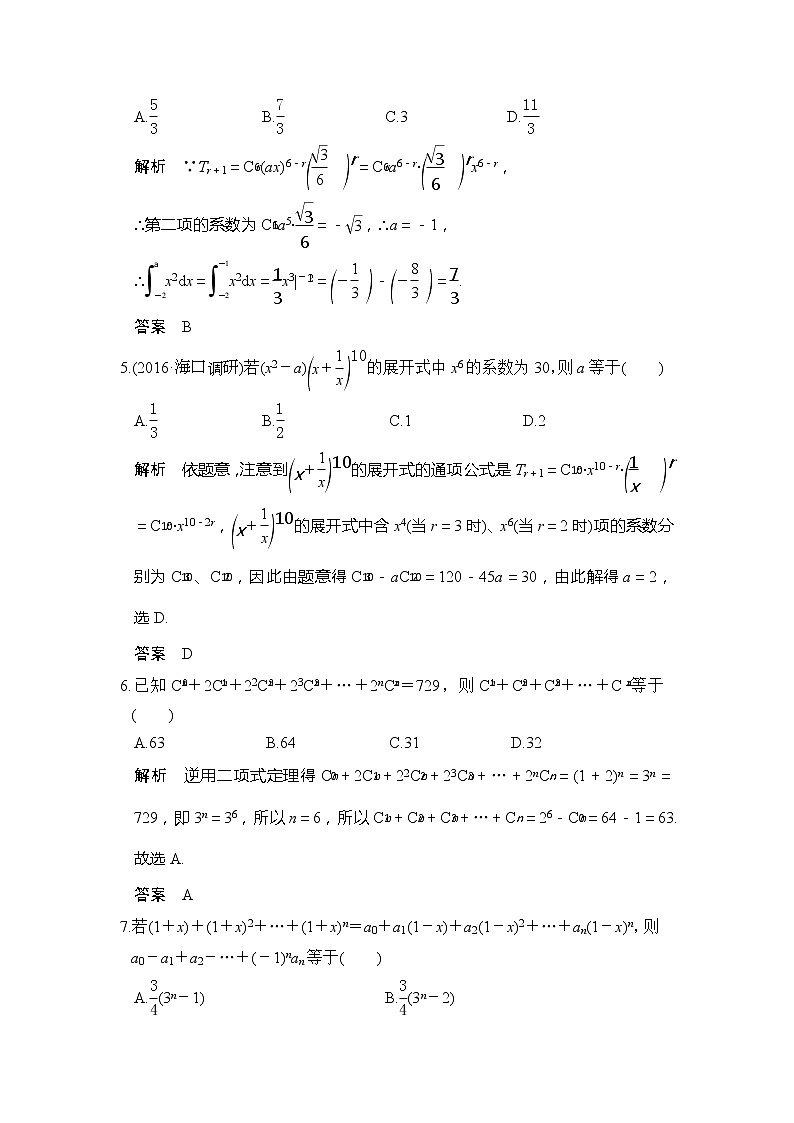 A.5/3 B.7/3 C.3 D.11/3
解析 ∵Tr+1=C6r(ax)6-r(√3/6)r=C6ra6-r·(√3/6)rx6-r,
∴第二项的系数为C61a5·√3/6=-√3,∴a=-1,
∴∫a-2x2dx=∫-1-2x2dx=1/3x3|-1-2=(-1/3)-(-8/3)=7/3.
答案 B
5.(2016·海口调研)若(x2-a)(x+1/x)10的展开式中x6的系数为30,则a等于( )
A.1/3 B.1/2 C.1 D.2
解析 依题意,注意到(x+1/x)10的展开式的通项公式是Tr+1=C10r·x10-r·(1/x)r
=C10r·x10-2r,(x+1/x)10的展开式中含x4(当r=3时)、x6(当r=2时)项的系数分
别为C103、C102,因此由题意得C103-aC102=120-45a=30,由此解得a=2,
选D.
答案 D
6.已知Cn0+2Cn1+22Cn2+23Cn3+…+2nCnn=729,则Cn1+Cn2+Cn3+…+Cnn等于
( )
A.63 B.64 C.31 D.32
解析 逆用二项式定理得Cn0+2Cn1+22Cn2+23Cn3+…+2nCnn=(1+2)n=3n=
729,即3n=36,所以n=6,所以Cn1+Cn2+Cn3+…+Cnn=26-Cn0=64-1=63.
故选A.
答案 A
7.若(1+x)+(1+x)2+…+(1+x)n=a0+a1(1-x)+a2(1-x)2+…+an(1-x)n,则
a0-a1+a2-…+(-1)nan等于( )
A.3/4(3n-1) B.3/4(3n-2)